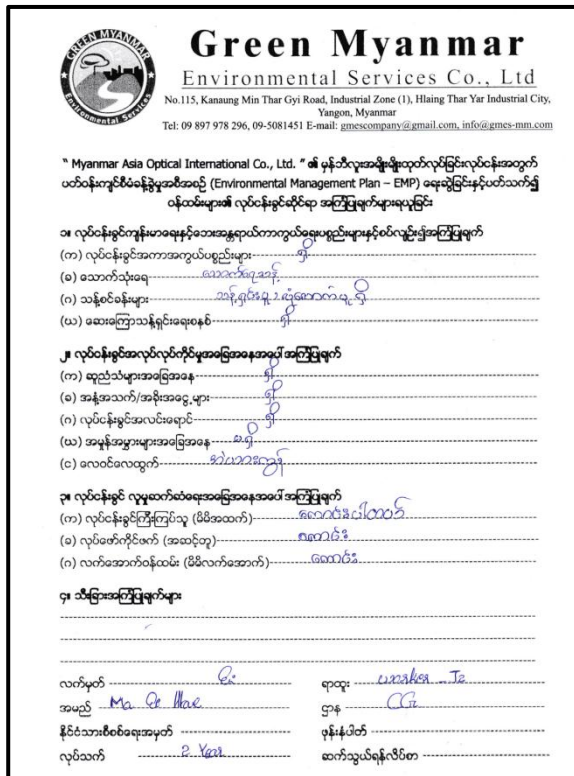 GREEN MYANMAR
Environmental Services
Green Myanmar
Environmental Services Co., Ltd
No.115, Kanaung Min Thar Gyi Road, Industrial Zone (1), Hlaing Thar Yar Industrial City,
Yangon, Myanmar
Tel: 09 897 978 296, 09-5081451 E-mail: gmescompany@gmail.com, info@gmes-mm.com
“ Myanmar Asia Optical International Co., Ltd. ” ၏ မှန်ဘီလူးအမျိုးမျိုးထုတ်လုပ်ခြင်းလုပ်ငန်းအတွက်
ပတ်ဝန်းကျင်စီမံခန့်ခွဲမှုအစီအစဉ် (Environmental Management Plan – EMP) ရေးဆွဲခြင်းနှင့်ပတ်သက်၍
ဝန်ထမ်းများ၏ လုပ်ငန်းခွင်ဆိုင်ရာ အကြံပြုချက်များရယူခြင်း
၁။ လုပ်ငန်းခွင်ကျန်းမာရေးနှင့်ဘေးအန္တရာယ်ကာကွယ်ရေးပစ္စည်းများနှင့်စပ်လျဉ်း၍အကြံပြုချက်
(က) လုပ်ငန်းခွင်အကာအကွယ်ပစ္စည်းများ ရှိ
(ခ) သောက်သုံးရေ သောက်ရေသန့်
(ဂ) သန့်စင်ခန်းများ သန့်ရှင်းမှု ၊ လုံလောက်မှု ရှိ
(ဃ) ဆေးကြောသန့်ရှင်းရေးစနစ် ရှိ
၂။ လုပ်ငန်းခွင်အလုပ်လုပ်ကိုင်မှုအခြေအနေအပေါ် အကြံပြုချက်
(က) ဆူညံသံများအခြေအနေ ရှိ
(ခ) အနံ့အသက်/အခိုးအငွေ့များ ရှိ
(ဂ) လုပ်ငန်းခွင်အလင်းရောင် ရှိ
(ဃ) အမှုန်အမွှားများအခြေအနေ မရှိ
(င) လေဝင်လေထွက် အဲယားကွန်
၃။ လုပ်ငန်းခွင် လူမှုဆက်ဆံရေးအခြေအနေအပေါ် အကြံပြုချက်
(က) လုပ်ငန်းခွင်ကြီးကြပ်သူ (မိမိအထက်) ကောင်းပါတယ်
(ခ) လုပ်ဖော်ကိုင်ဖက် (အဆင့်တူ) ကောင်း
(ဂ) လက်အောက်ဝန်ထမ်း (မိမိလက်အောက်) ကောင်း
၄။ သီးခြားအကြံပြုချက်များ
လက်မှတ် ရာထူး worker
အမည် Ma ဌာန CG
နိုင်ငံသားစိစစ်ရေးအမှတ် ဖုန်းနံပါတ်
လုပ်သက် 2 Year ဆက်သွယ်ရန်လိပ်စာ